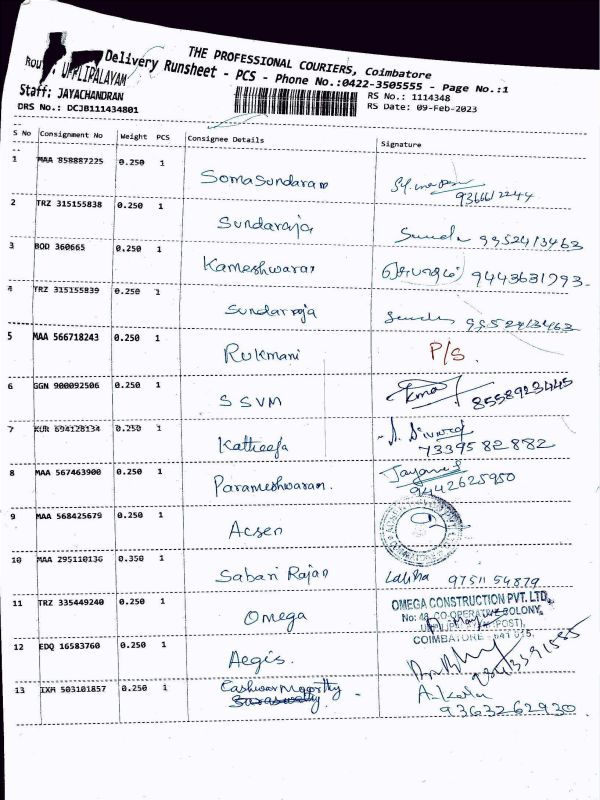 THE PROFESSIONAL COURIERS, Coimbatore
Delivery Runsheet - PCS - Phone No.:0422-3505555 - Page No.:1
UPPLIPALAYAM
Staff: JAYACHANDRAN
RS No.: 1114348
DRS No.: DCJB111434801
RS Date: 09-Feb-2023
S No Consignment No Weight PCS Consignee Details Signature
1 MAA 858887225 0.250 1 Somasundaram
2 TRZ 315155838 0.250 1 Sundaraja 9952413463
3 BOD 360665 0.250 1 Kameshwaran 9443631793
4 TRZ 315155839 0.250 1 Sundarraja 9952413463
5 MAA 566718243 0.250 1 Rukmani P/S.
6 GGN 900092506 0.250 1 SSVM 8558923445
7 KUR 694128134 0.250 1 73395 82 882
8 MAA 567463900 0.250 1 Parameshwaran. 9442625950
9 MAA 568425679 0.250 1 Acsen
10 MAA 295110136 0.350 1 Sabari Rajan Lalitha 97511 54879
11 TRZ 335449240 0.250 1 Omega
OMEGA CONSTRUCTION PVT. LTD.
No: 48, CO-OPERATIVE COLONY,
(POST),
COIMBATORE - 641 015.
12 EDQ 16583760 0.250 1 Aegis.
13 IXM 503101857 0.250 1 Eashwar Moorthy
9363262930.